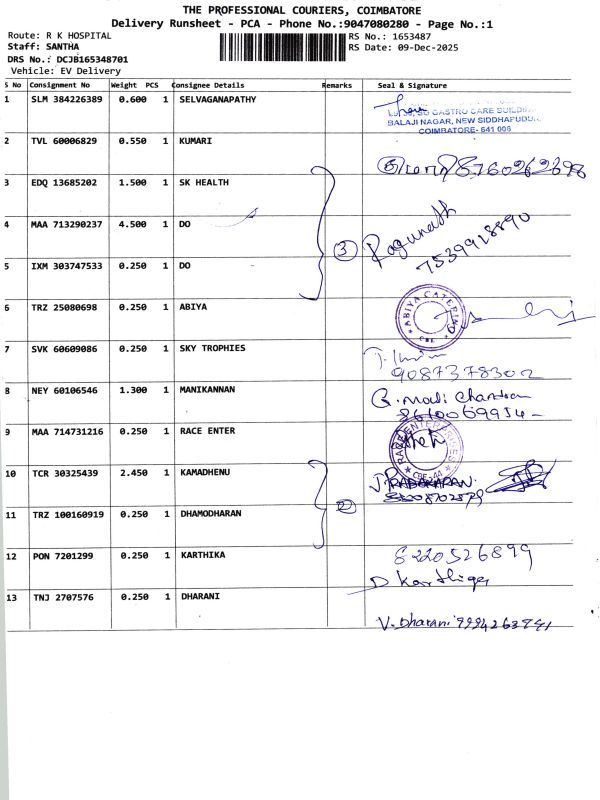 THE PROFESSIONAL COURIERS, COIMBATORE
Delivery Runsheet - PCA - Phone No.:9047080280 - Page No.:1
Route: R K HOSPITAL
RS No.: 1653487
Staff: SANTHA
RS Date: 09-Dec-2025
DRS No.: DCJB165348701
Vehicle: EV Delivery
S No Consignment No Weight PCS Consignee Details Remarks Seal & Signature
1 SLM 384226389 0.600 1 SELVAGANAPATHY
GASTRO CARE BUILDING
BALAJI NAGAR, NEW SIDDHAPUDUR
COIMBATORE- 641 006
2 TVL 60006829 0.550 1 KUMARI
8760262698
3 EDQ 13685202 1.500 1 SK HEALTH
4 MAA 713290237 4.500 1 DO
3 Ragunath
7539918890
5 IXM 303747533 0.250 1 DO
6 TRZ 25080698 0.250 1 ABIYA
ABIYA CATERING
CBE
7 SVK 60609086 0.250 1 SKY TROPHIES
9087378302
8 NEY 60106546 1.300 1 MANIKANNAN
G. Mouli Chandran
9 MAA 714731216 0.250 1 RACE ENTER
RACE ENTERPRISES
CBE-44
10 TCR 30325439 2.450 1 KAMADHENU
J. PRABAKARAN
11 TRZ 100160919 0.250 1 DHAMODHARAN
2
12 PON 7201299 0.250 1 KARTHIKA
8220526899
D Karthiga
13 TNJ 2707576 0.250 1 DHARANI
V. Dharani 9994263941